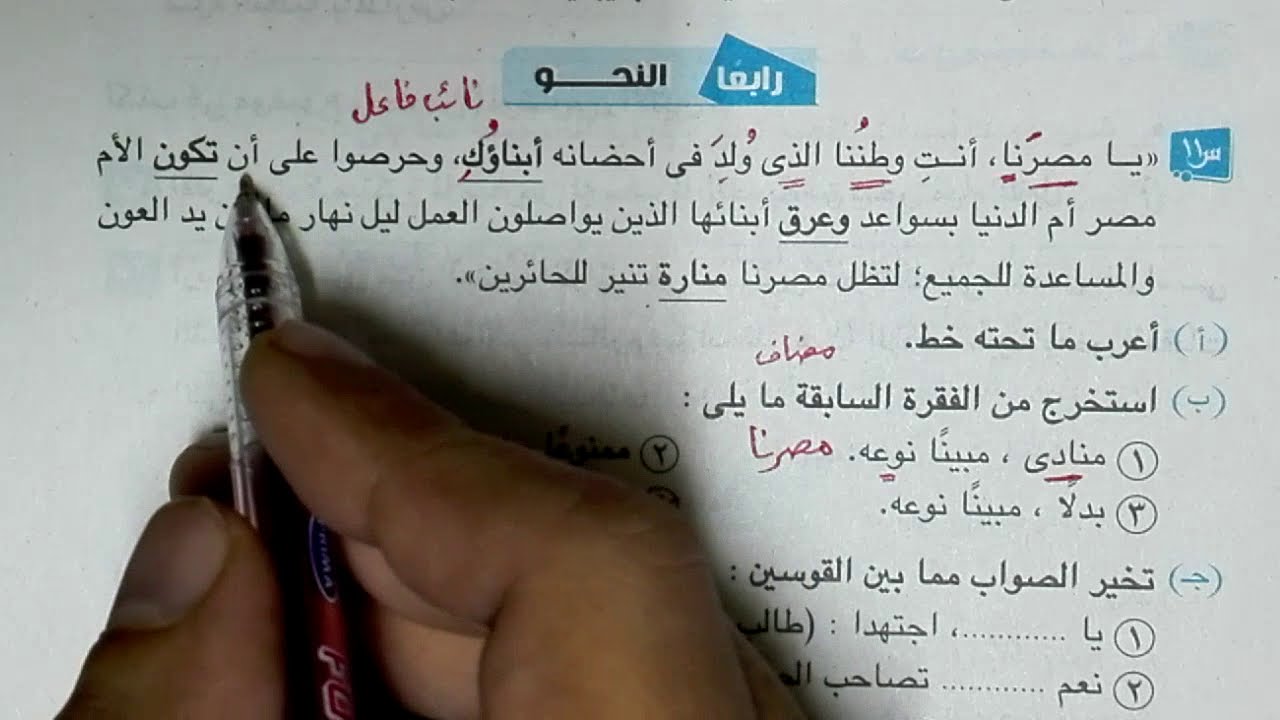 رابعًا النحو
نائب فاعل
س١١ «يا مصرَنا، أنتِ وطنُنا الذِى وُلِدَ فى أحضانه أبناؤُكِ، وحرصوا على أن تكون الأم
مصر أم الدنيا بسواعد وعرق أبنائها الذين يواصلون العمل ليل نهار يد العون
والمساعدة للجميع؛ لتظل مصرنا منارة تنير للحائرين».
(أ) أعرب ما تحته خط.
مضاف
(ب) استخرج من الفقرة السابقة ما يلى :
١ منادى ، مبينًا نوعه. مصرنا ٢ ممنوعًا
٣ بدلًا ، مبينًا نوعه.
(جـ) تخير الصواب مما بين القوسين :
١ يا ............، اجتهدا : (طالب
٢ نعم ............ تصاحب
PRIMA